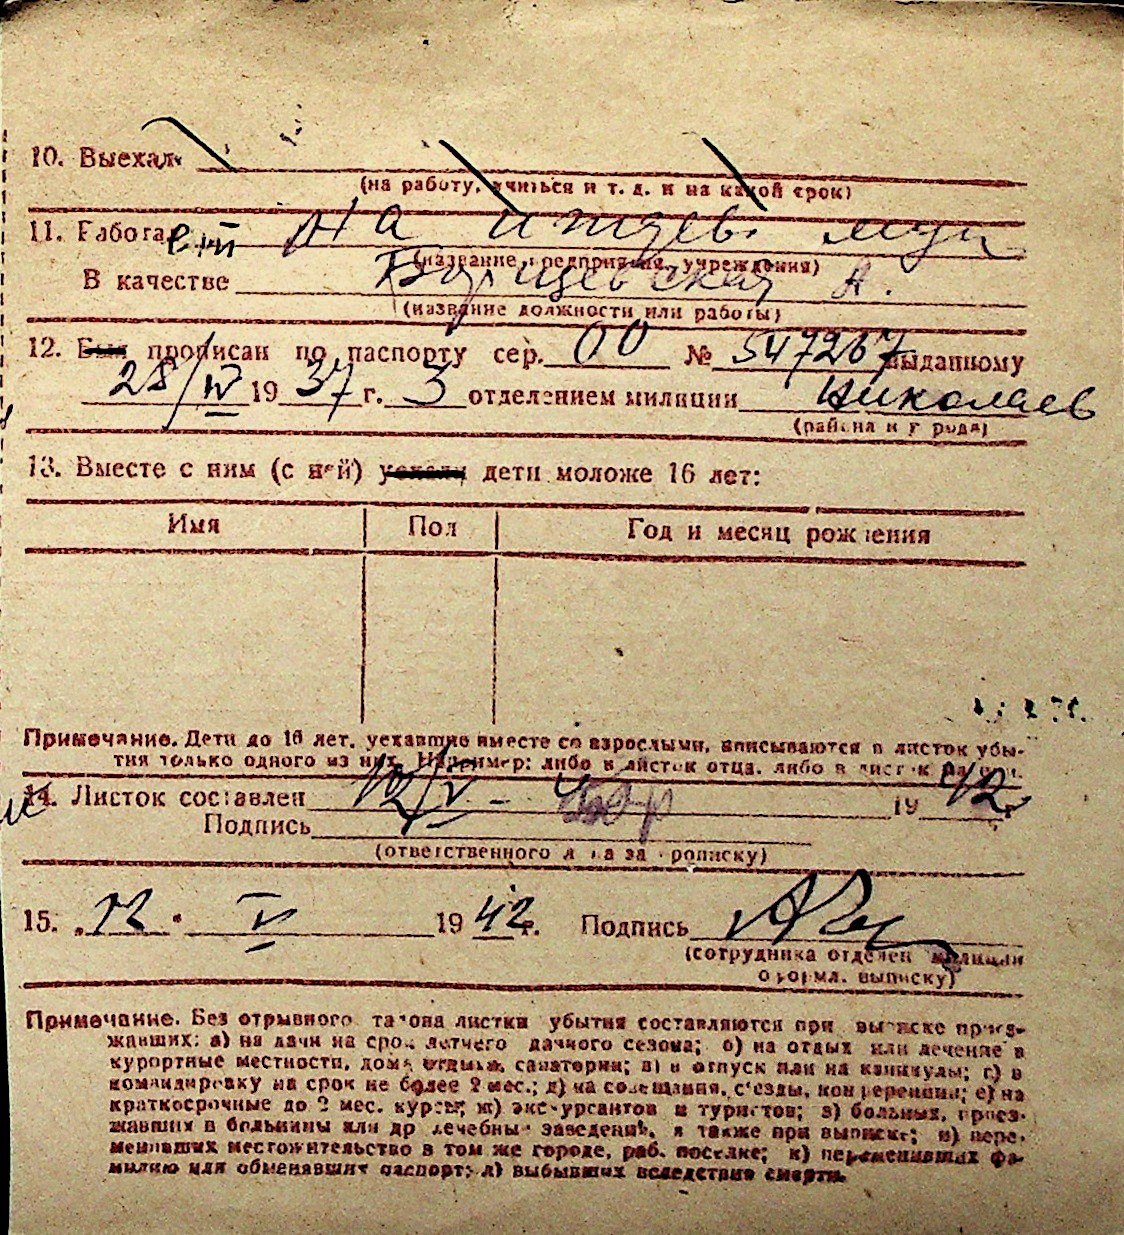 10. Выехал
(на работу, учиться и т. д. и на какой срок)
11. Работает На иждев. муж
(название предприятия, учреждения)
В качестве Борщевская А.
(название должности или работы)
12. Был прописан по паспорту сер. 00 № 547267 выданному
28/IV 1937 г. 3 отделением милиции Николаев
(района и города)
13. Вместе с ним (с ней) уехали дети моложе 16 лет:
Имя Пол Год и месяц рождения
Примечание. Дети до 16 лет, уехавшие вместе со взрослыми, вписываются в листок убы-
тия только одного из них. Например: либо в листок отца, либо в листок
14. Листок составлен 12/V - 1942
Подпись
(ответственного лица за прописку)
15. „12" V 1942 г. Подпись
(сотрудника отделен милиции
оформл. выписку)
Примечание. Без отрывного талона листки убытия составляются при выписке приез-
жавших: а) на дачи на срок летнего дачного сезона; б) на отдых или лечение в
курортные местности, дома отдыха, санатории; в) в отпуск или на каникулы; г) в
командировку на срок не более 2 мес.; д) на совещания, съезды, конференции; е) на
краткосрочные до 2 мес. курсы; ж) экскурсантов и туристов; з) больных, приез-
жавших в больницы или др лечебные заведения, а также при выписке; и) пере-
менивших местожительство в том же городе, раб. поселке; к) переменивших фа-
милию или обменявших паспорт; л) выбывших вследствие смерти.